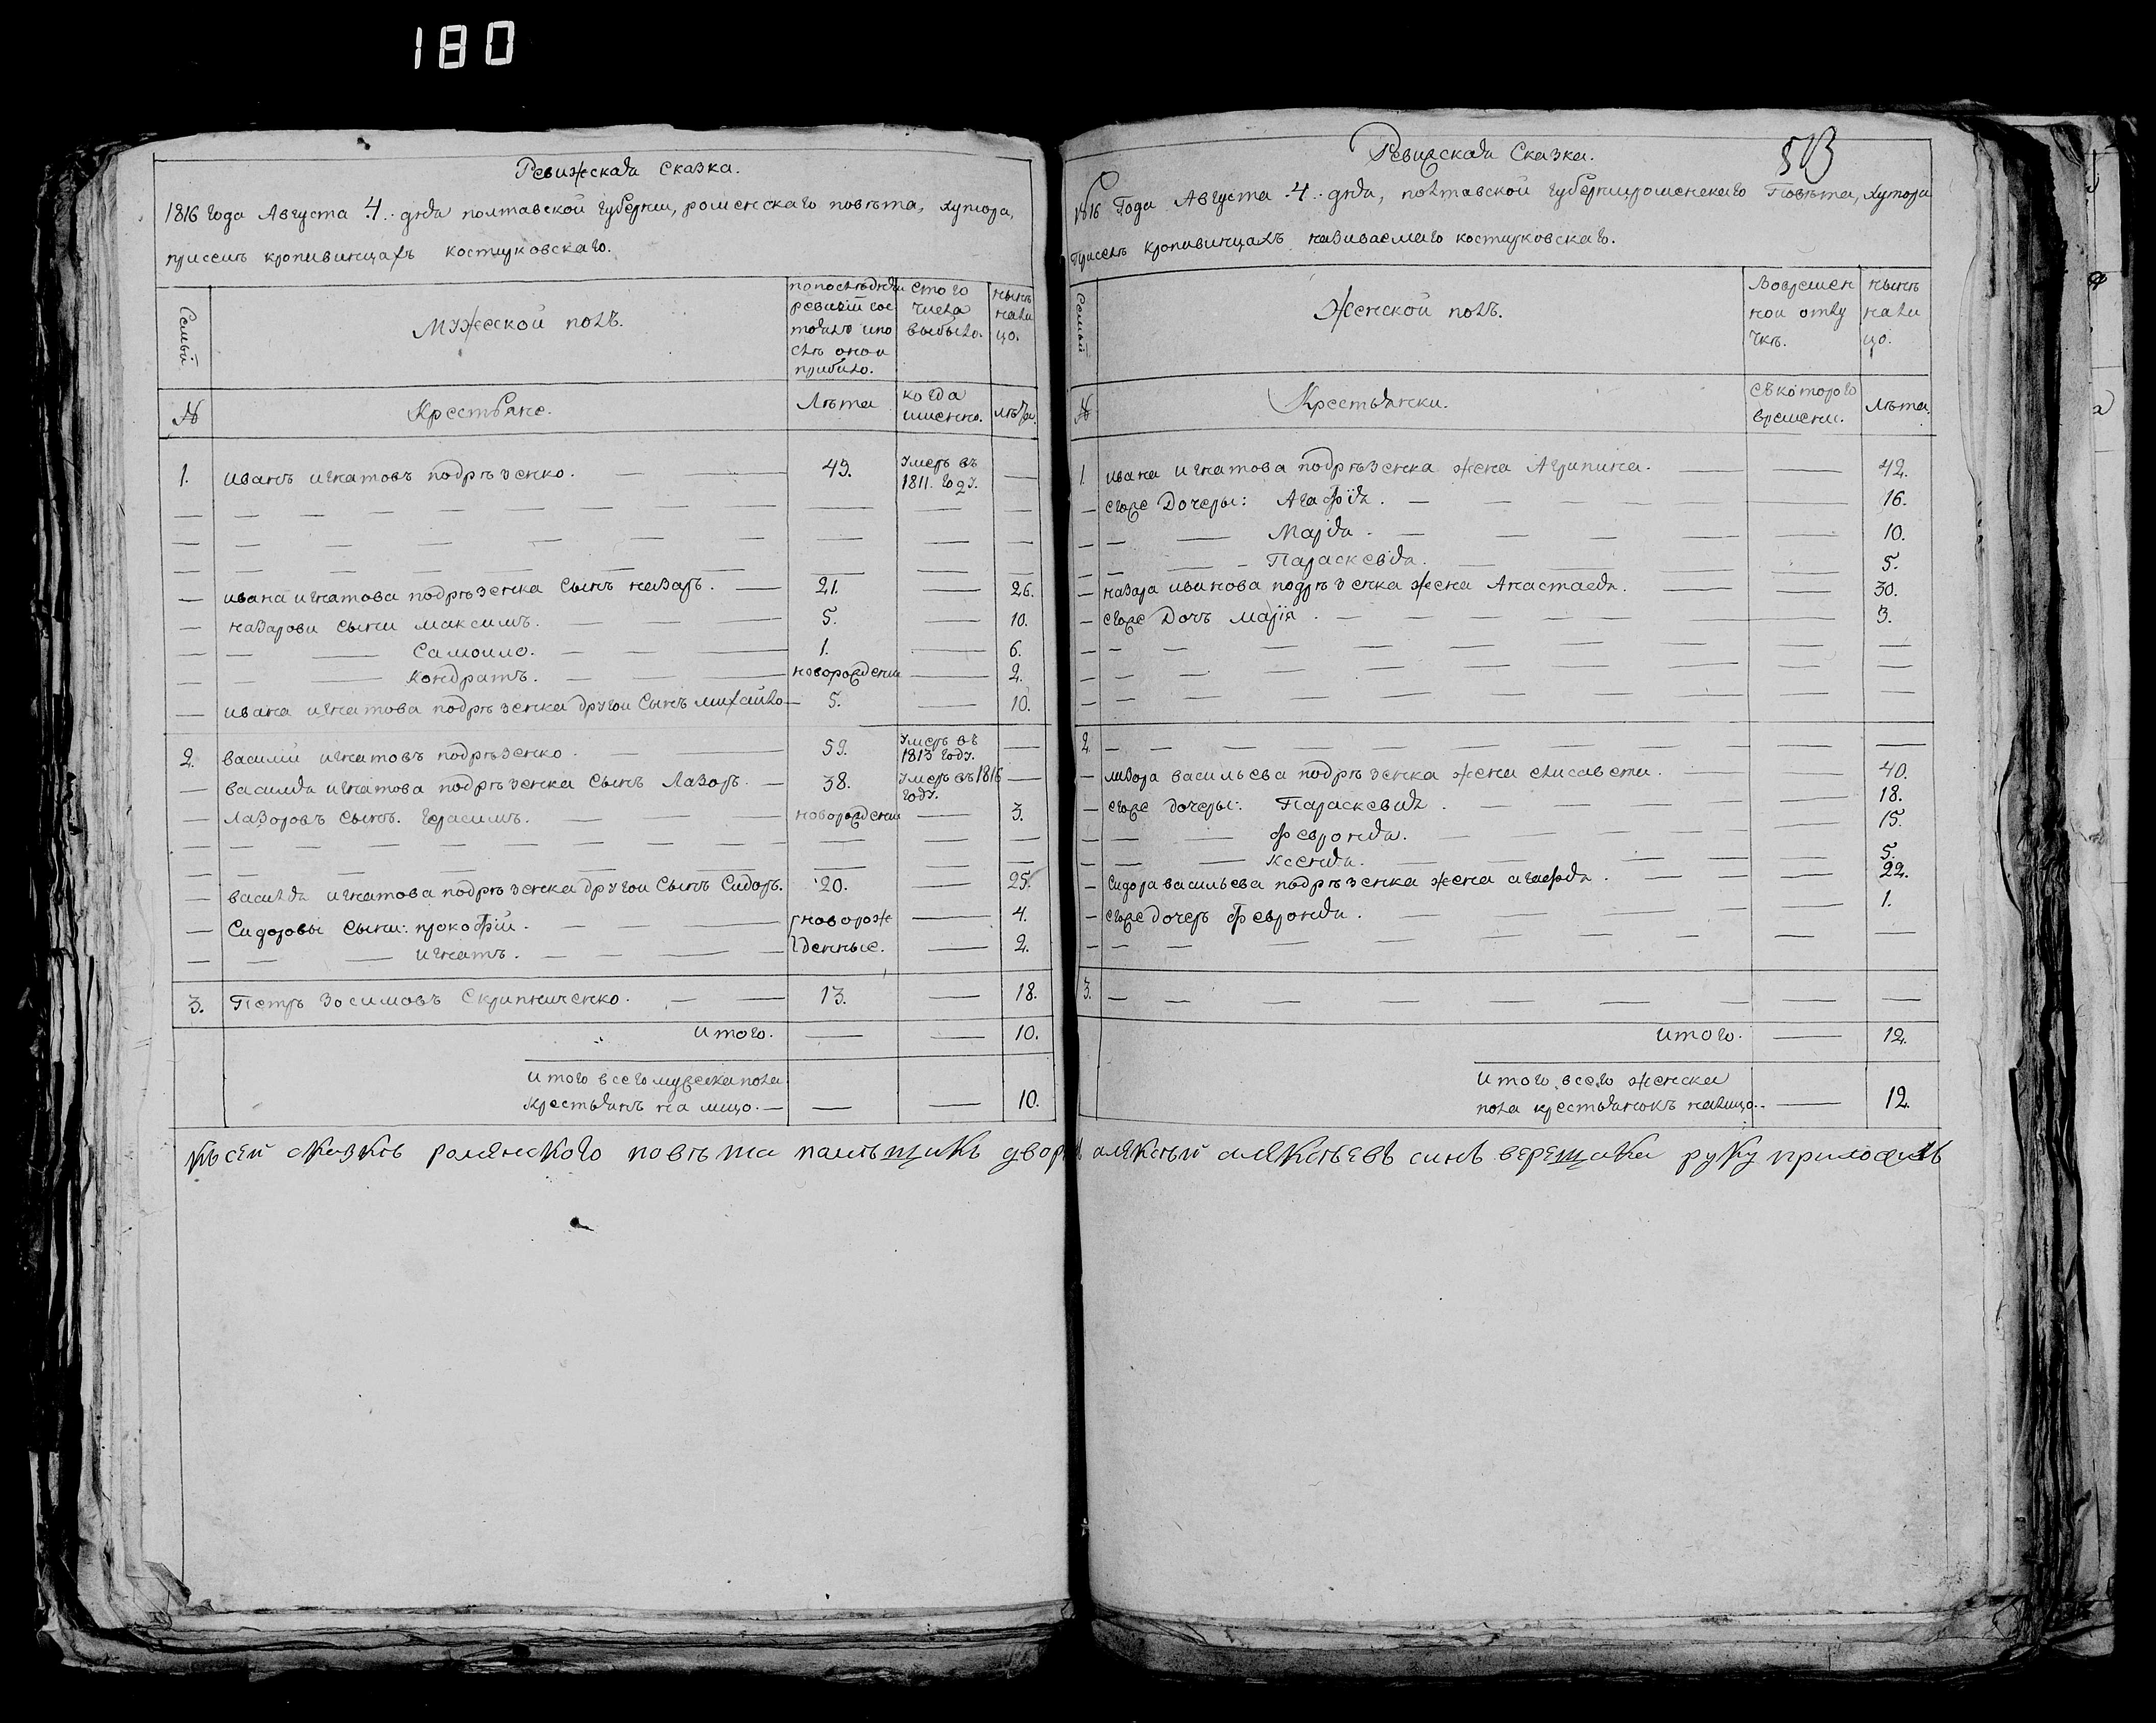 180
Ревижская Сказка.
1816 года Августа 4. дня полтавской губернии, роменскаго повѣта, хутора,
приселѣ кропивинцахъ костюковскаго.
Семьи
Мужеской полъ.
попослѣдней
ревизіи сос
тояло ипо
слѣ оной
прибыло.
стого
числа
выбыло.
нынѣ
нали
цо.
№
Крестьяне.
Лѣта
когда
именно.
лѣта.
1. иванъ игнатовъ подрѣзенко. 49. Умеръ въ
1811. году.
ивана игнатова подрѣзенка сынъ назаръ. 21. 26.
назарови сыни максимъ. 5. 10.
Самоило. 1. 6.
кондратъ. новорожденни 2.
ивана игнатова подрѣзенка другои сынъ михайло 5. 10.
2. василий игнатовъ подрѣзенко. 59. Умеръ въ
1813 году.
василя игнатова подрѣзенка сынъ Лазоръ. 38. Умеръ въ 1816
году.
Лазоровъ сынъ. герасимъ. новорожденни 3.
василя игнатова подрѣзенка другои сынъ Сидоръ. 20. 25.
Сидоровы сыни: прокофій. новорож 4.
игнатъ. денные. 2.
3. Петръ Зосимовъ Скрипниченко. 13. 18.
итого. 10.
итого всего мужеска пола
крестьянъ на лицо. 10.
Ревижская Сказка.
513
1816 Года Августа 4. дня, полтавской губернии, роменскаго Повѣта, хутора
приселѣ кропивинцахъ називаемаго костюковскаго.
Семьи
Женской полъ.
Вовремен
нои отлу
чкѣ.
нынѣ
нали
цо.
№
Крестьянки.
съкоторого
времени.
Лѣта.
1. ивана игнатова подрѣзенка жена Агрипина. 42.
егоже Дочеры: Агафія. 16.
Марія. 10.
Параскевія. 5.
назара иванова подрѣзенка жена Анастасія. 30.
егоже Дочъ марія. 3.
2.
лазора васильева подрѣзенка жена елисавета. 40.
егоже дочеры: Параскевия. 18.
февронія. 15.
ксенія. 5.
Сидора васильева подрѣзенка жена агафія. 22.
егоже дочеръ февронія. 1.
3.
итого. 12.
итого всего женска
пола крестьянокъ налицо. 12.
къ сей сказкѣ роменского повѣта помѣщикъ алексѣй алексѣевъ синъ верещака руку приложилъ